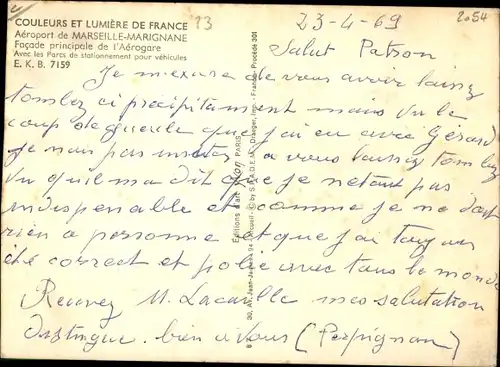 COULEURS ET LUMIÈRE DE FRANCE
Aéroport de MARSEILLE-MARIGNANE
Façade principale de l'Aérogare
Avec les Parcs de stationnement pour véhicules
E. K. B. 7159
13
23-4-69
2054
Salut Patron
Je m'excuse de vous avoir laissez
tombez ci précipitament mais vu le
coup de gueule que j'ai eu avec Gérard
je nan pas a vous laissez tombez
vu qu'il ma dit que je netant pas
indispensable et comme je ne doit
rien a personne et que j'ai toujour
été correct et polie avec tous le monde
Recevez M. Lacaille mes salutation
distingue. bien a vous (Perpignan)
Editions PARIS